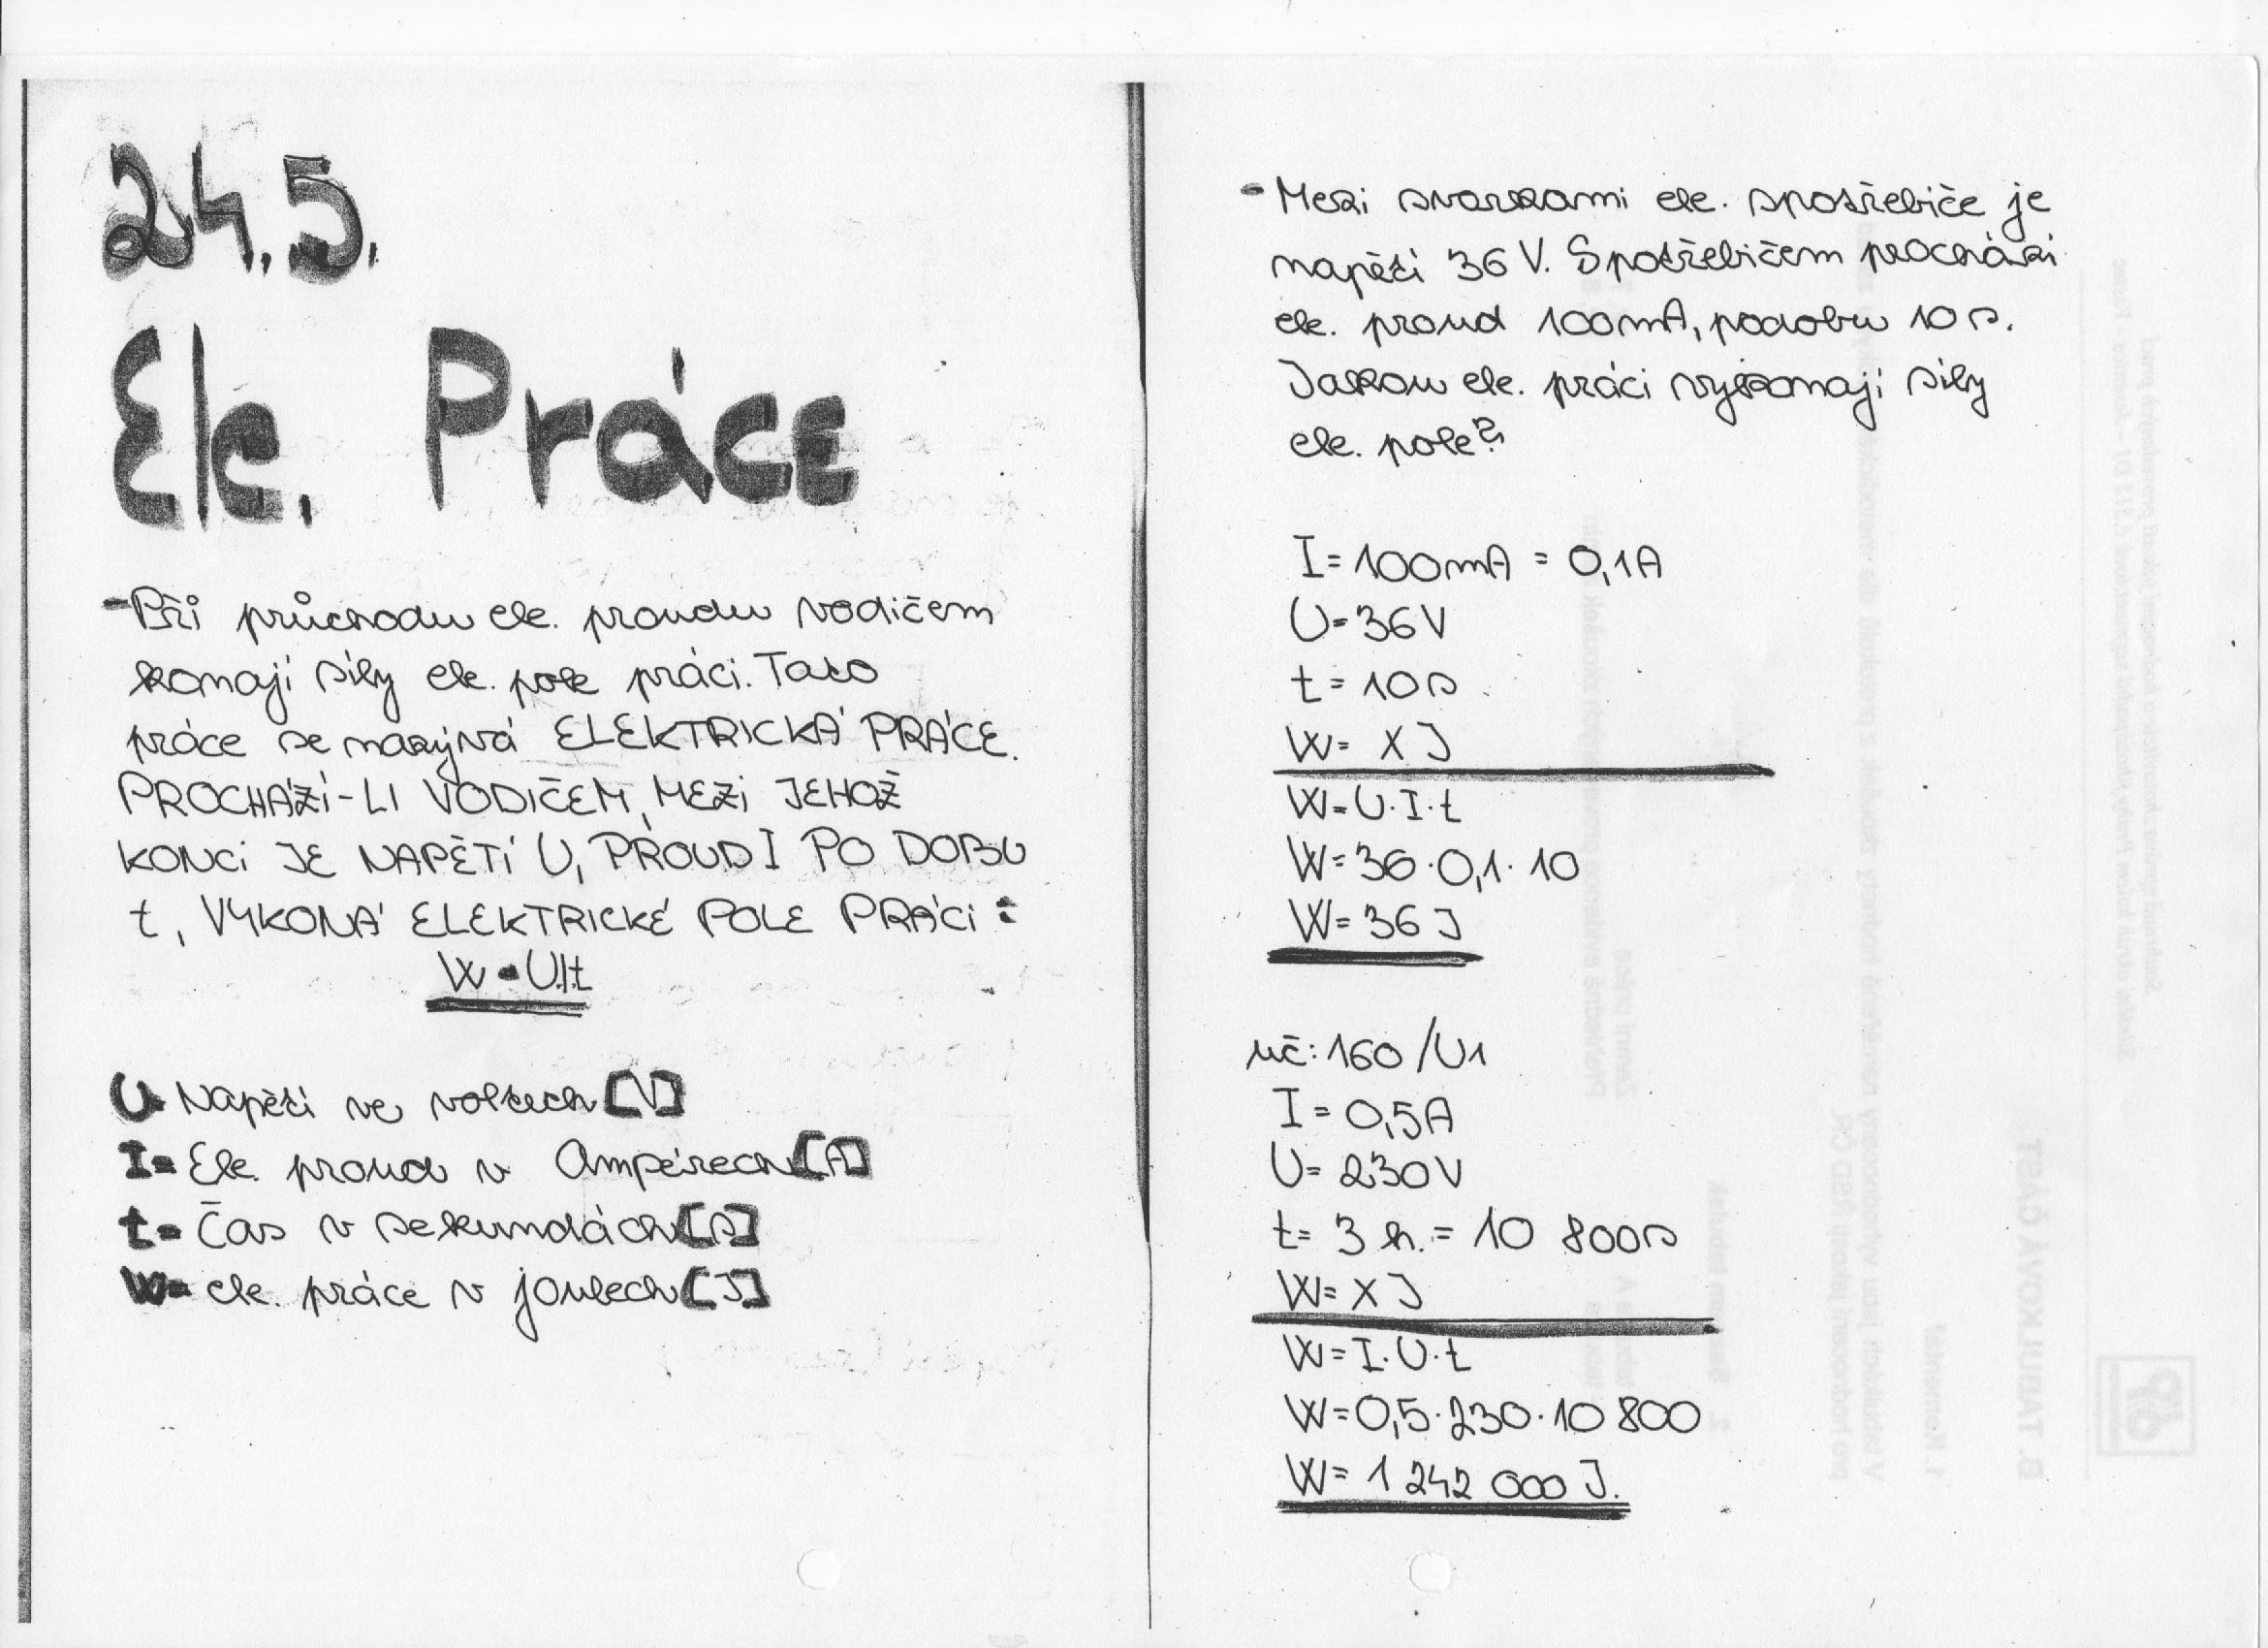 24.5.
Ele. Práce
- Při průchodu ele. proudu vodičem
konají síly ele. pole práci. Tato
práce se nazývá ELEKTRICKÁ PRÁCE.
PROCHÁZÍ-LI VODIČEM, MEZI JEHOŽ
KONCI JE NAPĚTÍ U, PROUD I PO DOBU
t, VYKONÁ ELEKTRICKÉ POLE PRÁCI:
W = U.I.t
U- Napětí ve voltech [V]
I= Ele. proud v Ampérech [A]
t= Čas v sekundách [s]
W= ele. práce v joulech [J]
- Mezi svorkami ele. spotřebiče je
napětí 36 V. Spotřebičem prochází
ele. proud 100mA, podobu 10 s.
Jakou ele. práci vykonají síly
ele. pole?
I= 100mA = 0,1A
U= 36V
t= 10s
W= X J
W= U·I·t
W= 36·0,1·10
W= 36 J
uč: 160/U1
I= 0,5A
U= 230V
t= 3 h. = 10 800s
W= X J
W= I·U·t
W= 0,5·230·10 800
W= 1 242 000 J.